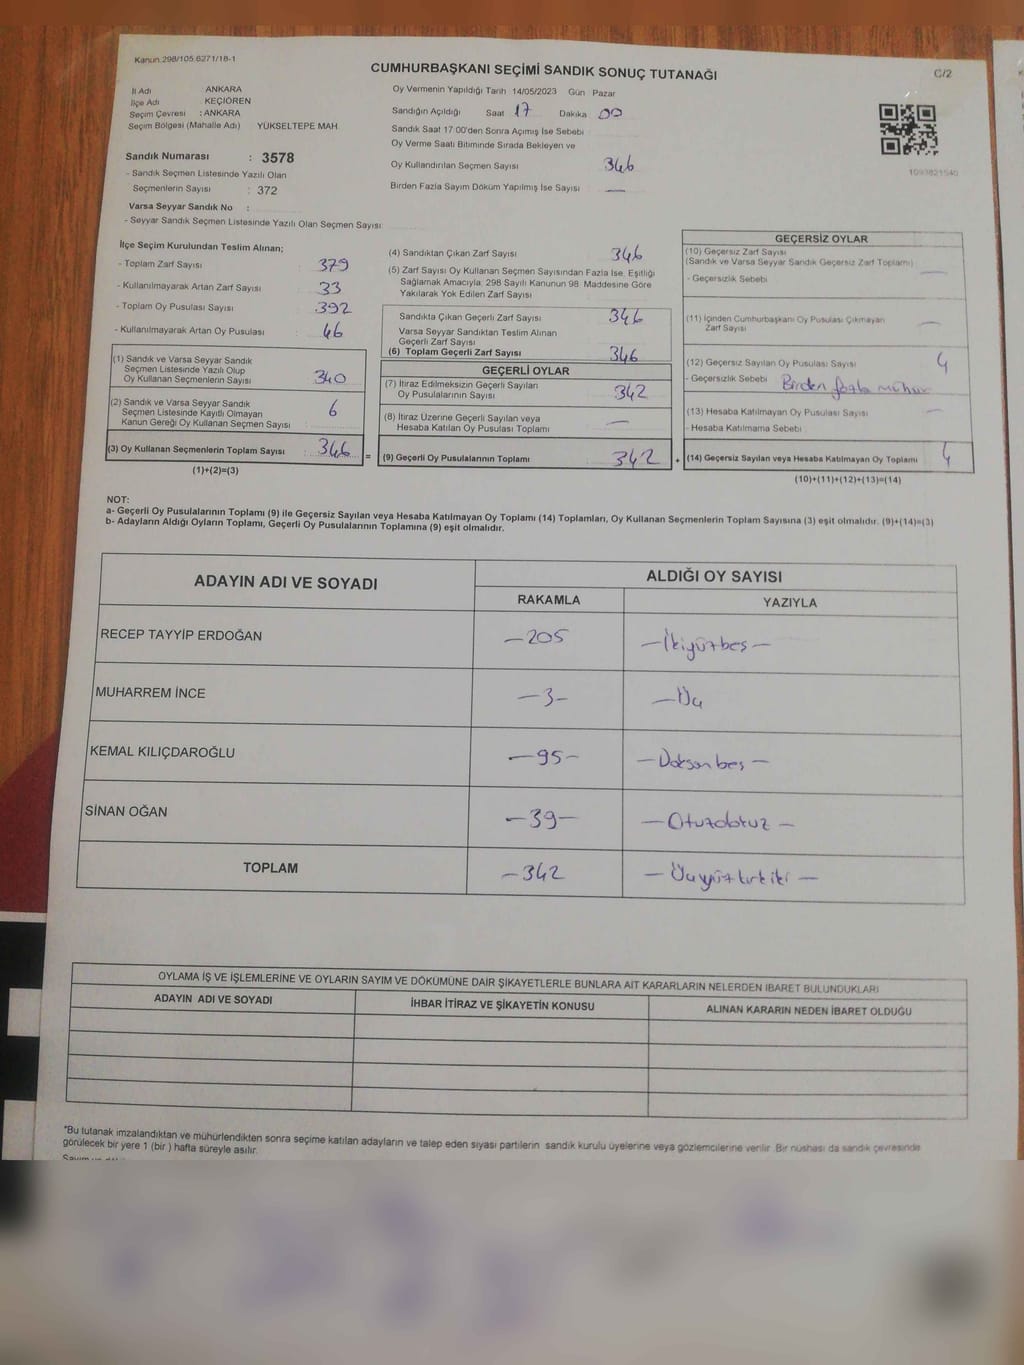 Kanun.298/105.6271/18-1
C/2
CUMHURBAŞKANI SEÇİMİ SANDIK SONUÇ TUTANAĞI
İl Adı : ANKARA
İlçe Adı : KEÇİÖREN
Seçim Çevresi : ANKARA
Seçim Bölgesi (Mahalle Adı) YÜKSELTEPE MAH.
Sandık Numarası : 3578
- Sandık Seçmen Listesinde Yazılı Olan
Seçmenlerin Sayısı : 372
Varsa Seyyar Sandık No :
- Seyyar Sandık Seçmen Listesinde Yazılı Olan Seçmen Sayısı
Oy Vermenin Yapıldığı Tarih 14/05/2023 Gün Pazar
Sandığın Açıldığı Saat 17 Dakika 00
Sandık Saat 17:00'den Sonra Açımış İse Sebebi
Oy Verme Saati Bitiminde Sırada Bekleyen ve
Oy Kullandırılan Seçmen Sayısı 346
Birden Fazla Sayım Döküm Yapılmış İse Sayısı —
1093821540
İlçe Seçim Kurulundan Teslim Alınan;
- Toplam Zarf Sayısı : 379
- Kullanılmayarak Artan Zarf Sayısı : 33
- Toplam Oy Pusulası Sayısı : 392
- Kullanılmayarak Artan Oy Pusulası : 46
(1) Sandık ve Varsa Seyyar Sandık
Seçmen Listesinde Yazılı Olup
Oy Kullanan Seçmenlerin Sayısı : 340
(2) Sandık ve Varsa Seyyar Sandık
Seçmen Listesinde Kayıtlı Olmayan
Kanun Gereği Oy Kullanan Seçmen Sayısı : 6
(3) Oy Kullanan Seçmenlerin Toplam Sayısı : 346 =
(1)+(2)=(3)
(4) Sandıktan Çıkan Zarf Sayısı 346
(5) Zarf Sayısı Oy Kullanan Seçmen Sayısından Fazla İse, Eşitliği
Sağlamak Amacıyla, 298 Sayılı Kanunun 98. Maddesine Göre
Yakılarak Yok Edilen Zarf Sayısı
Sandıkta Çıkan Geçerli Zarf Sayısı 346
Varsa Seyyar Sandıktan Teslim Alınan
Geçerli Zarf Sayısı
(6) Toplam Geçerli Zarf Sayısı 346
GEÇERLİ OYLAR
(7) İtiraz Edilmeksizin Geçerli Sayılan
Oy Pusulalarının Sayısı 342
(8) İtiraz Üzerine Geçerli Sayılan veya
Hesaba Katılan Oy Pusulası Toplamı —
(9) Geçerli Oy Pusulalarının Toplamı 342 +
GEÇERSİZ OYLAR
(10) Geçersiz Zarf Sayısı
(Sandık ve Varsa Seyyar Sandık Geçersiz Zarf Toplamı) —
- Geçersizlik Sebebi
(11) İçinden Cumhurbaşkanı Oy Pusulası Çıkmayan
Zarf Sayısı —
(12) Geçersiz Sayılan Oy Pusulası Sayısı 4
- Geçersizlik Sebebi Birden fazla mühür
(13) Hesaba Katılmayan Oy Pusulası Sayısı —
- Hesaba Katılmama Sebebi
(14) Geçersiz Sayılan veya Hesaba Katılmayan Oy Toplamı 4
(10)+(11)+(12)+(13)=(14)
NOT:
a- Geçerli Oy Pusulalarının Toplamı (9) ile Geçersiz Sayılan veya Hesaba Katılmayan Oy Toplamı (14) Toplamları, Oy Kullanan Seçmenlerin Toplam Sayısına (3) eşit olmalıdır. (9)+(14)=(3)
b- Adayların Aldığı Oyların Toplamı, Geçerli Oy Pusulalarının Toplamına (9) eşit olmalıdır.
ADAYIN ADI VE SOYADI ALDIĞI OY SAYISI
RAKAMLA YAZIYLA
RECEP TAYYİP ERDOĞAN —205 —İkiyüzbeş—
MUHARREM İNCE —3— —Üç
KEMAL KILIÇDAROĞLU —95— —Doksanbeş—
SİNAN OĞAN —39— —Otuzdokuz—
TOPLAM —342 —Üçyüzkırkiki—
OYLAMA İŞ VE İŞLEMLERİNE VE OYLARIN SAYIM VE DÖKÜMÜNE DAİR ŞİKAYETLERLE BUNLARA AİT KARARLARIN NELERDEN İBARET BULUNDUKLARI
ADAYIN ADI VE SOYADI İHBAR İTİRAZ VE ŞİKAYETİN KONUSU ALINAN KARARIN NEDEN İBARET OLDUĞU
*Bu tutanak imzalandıktan ve mühürlendikten sonra seçime katılan adayların ve talep eden siyasi partilerin sandık kurulu üyelerine veya gözlemcilerine verilir. Bir nüshası da sandık çevresinde
görülecek bir yere 1 (bir ) hafta süreyle asılır.